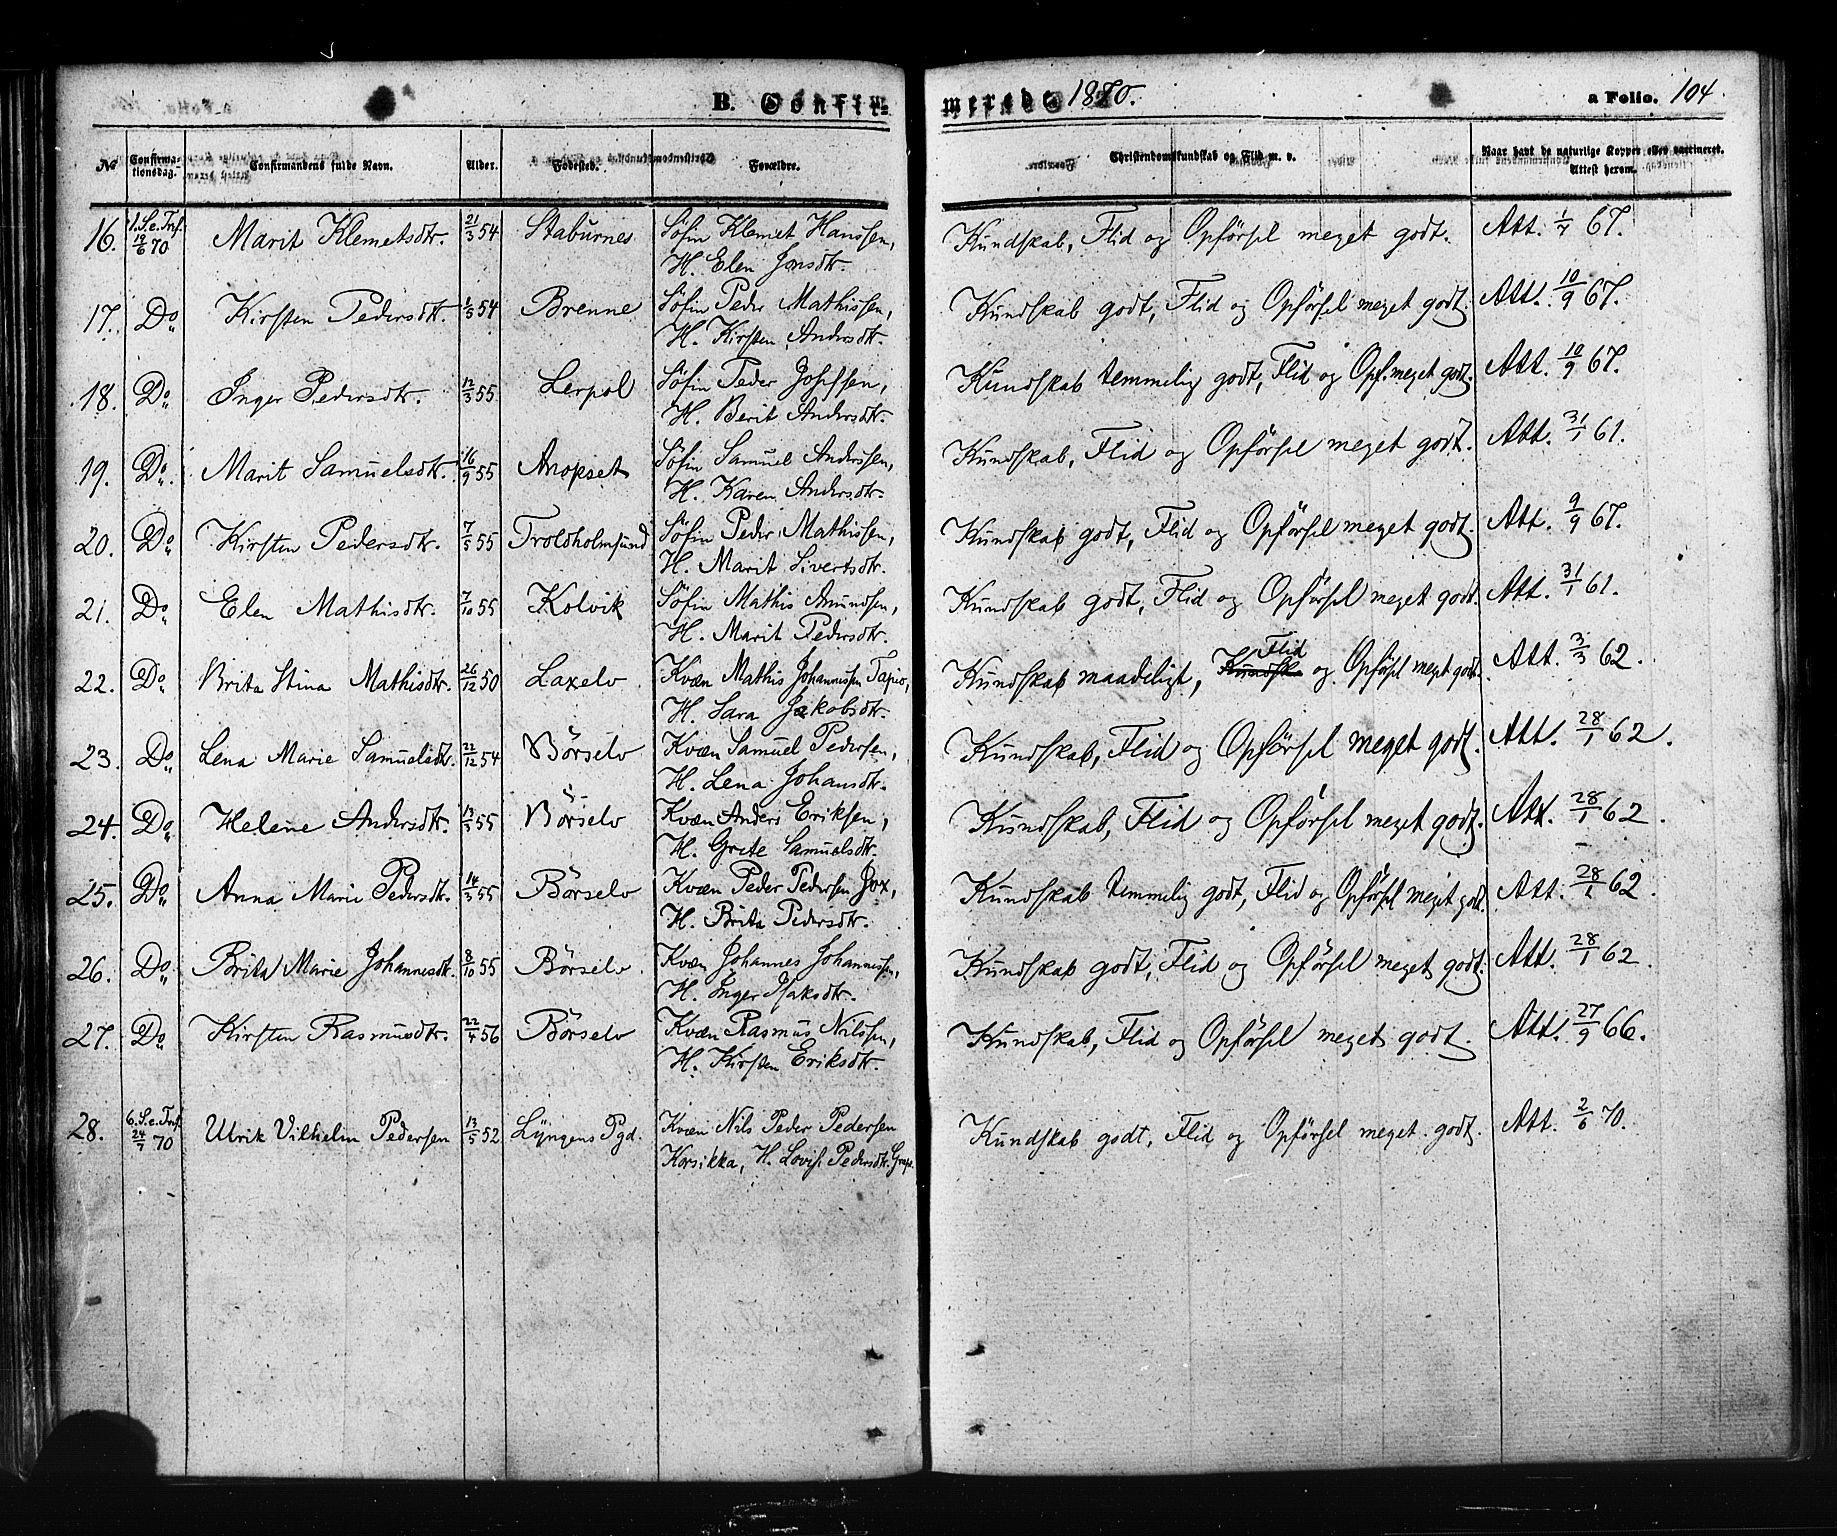 B. Confir-
merede 1870. a Folio. 104.
No Confirma-tionsdag. Confirmandens fulde Navn. Alder. Fødested. Forældre. Christendomskundskab og Flid m. v. Naar havt de naturlige Kopper eller vaccineret. Attest herom.
16. 1. S. e. Trf. 19/6 70 Marit Klemetsdtr. 21/3 54 Staburnes Søfin Klemet Hanssen, Kundskab, Flid og Opførsel meget godt. Att. 1/7 67.
H. Elen Jonsdtr.
17. Do Kirsten Pedersdtr. 1/5 54 Brenne Søfin Peder Mathissen, Kundskab godt, Flid og Opførsel meget godt. Att. 10/9 67.
H. Kirsten Andersdtr.
18. Do Inger Pedersdtr. 12/3 55 Lerpol Søfin Peder Josefsen, Kundskab temmelig godt, Flid og Opf. meget godt. Att. 10/9 67.
H. Berit Andersdtr.
19. Do Marit Samuelsdtr. 16/9 55 Anopset Søfin Samuel Anderssen, Kundskab, Flid og Opførsel meget godt. Att. 31/1 61.
H. Karen Andersdtr.
20. Do Kirsten Pedersdtr. 7/5 55 Troldholmsund Søfin Peder Mathissen, Kundskab godt, Flid og Opførsel meget godt. Att. 9/9 67.
H. Marit Sivertsdtr.
21. Do Elen Mathisdtr. 7/10 55 Kolvik Søfin Mathis Amundsen, Kundskab godt, Flid og Opførsel meget godt. Att. 31/1 61.
H. Marit Pedersdtr.
22. Do Brita Stina Mathisdtr. 26/12 50 Laxelv Kvæn Mathis Johannesen Tapio, Kundskab maadeligt, Kundsk Flid og Opførsel meget godt. Att. 3/3 62.
H. Sara Jakobsdtr.
23. Do Lena Marie Samuelsdtr. 22/12 54 Börselv Kvæn Samuel Pedersen, Kundskab, Flid og Opførsel meget godt. Att. 28/1 62.
H. Lena Johansdtr.
24. Do Helene Andersdtr. 13/3 55 Börselv Kvæn Anders Eriksen, Kundskab, Flid og Opførsel meget godt. Att. 28/1 62.
H. Grete Samuelsdtr.
25. Do Anna Marie Pedersdtr. 14/3 55 Börselv Kvæn Peder Pedersen Jox, Kundskab temmelig godt, Flid og Opførsel meget godt. Att. 28/1 62.
H. Brita Pedersdtr.
26. Do Brita Marie Johannesdtr. 8/10 55 Börselv Kvæn Johannes Johannessen, Kundskab godt, Flid og Opførsel meget godt. Att. 28/1 62.
H. Inger Isaksdtr.
27. Do Kirsten Rasmusdtr. 22/4 56 Börselv Kvæn Rasmus Nilssen, Kundskab, Flid og Opførsel meget godt. Att. 27/9 66.
H. Kirsten Eriksdtr.
28. 6. S. e. Trf. 24/7 70 Ulrik Vilhelm Pedersen 13/5 52 Lyngens Pgd. Kvæn Nils Peder Pedersen Kundskab godt, Flid og Opførsel meget godt. Att. 2/6 70.
Korsikka, H. Lovise Pedersdtr.